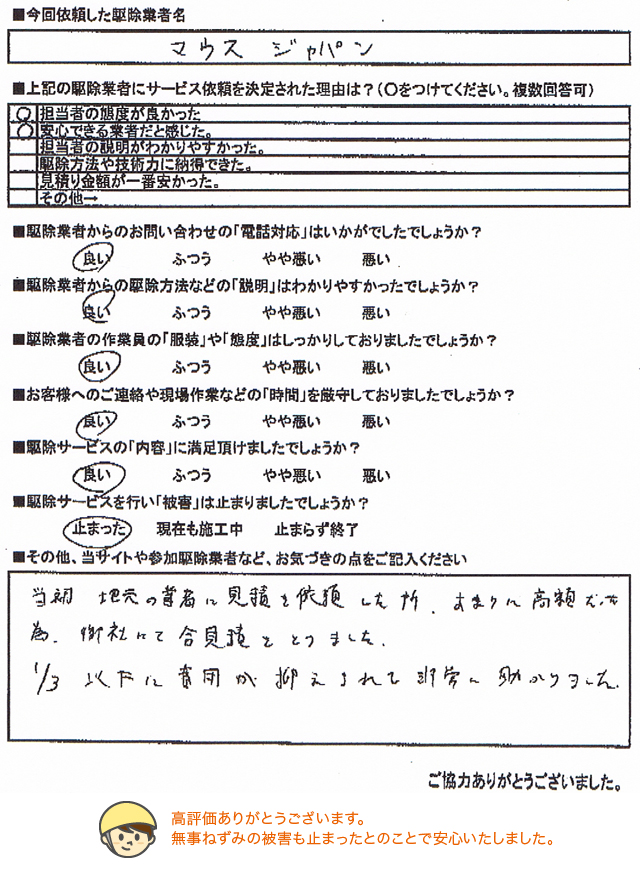 ■今回依頼した駆除業者名
マウス ジャパン
■上記の駆除業者にサービス依頼を決定された理由は？(○をつけてください。複数回答可)
○ 担当者の態度が良かった
○ 安心できる業者だと感じた。
担当者の説明がわかりやすかった。
駆除方法や技術力に納得できた。
見積り金額が一番安かった。
その他→
■駆除業者からのお問い合わせの「電話対応」はいかがでしたでしょうか？
良い ふつう やや悪い 悪い
■駆除業者からの駆除方法などの「説明」はわかりやすかったでしょうか？
良い ふつう やや悪い 悪い
■駆除業者の作業員の「服装」や「態度」はしっかりしておりましたでしょうか？
良い ふつう やや悪い 悪い
■お客様へのご連絡や現場作業などの「時間」を厳守しておりましたでしょうか？
良い ふつう やや悪い 悪い
■駆除サービスの「内容」に満足頂けましたでしょうか？
良い ふつう やや悪い 悪い
■駆除サービスを行い「被害」は止まりましたでしょうか？
止まった 現在も施工中 止まらず終了
■その他、当サイトや参加駆除業者など、お気づきの点をご記入ください
当初 地元の業者に見積を依頼した所、あまりに高額だった
為、御社にて合見積をとりました。
1/3 以下に費用が抑えられて非常に助かりました。
ご協力ありがとうございました。
高評価ありがとうございます。
無事ねずみの被害も止まったとのことで安心いたしました。